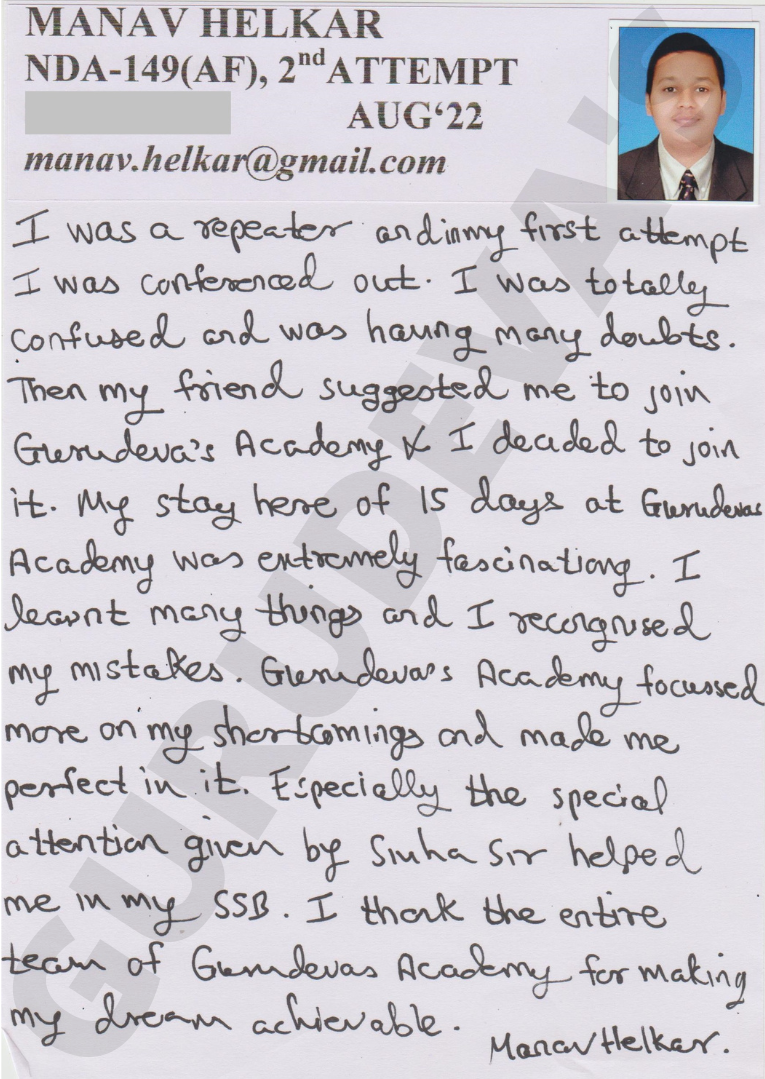 MANAV HELKAR
NDA-149(AF), 2nd ATTEMPT
AUG‘22
manav.helkar@gmail.com
I was a repeater and in my first attempt
I was conferenced out. I was totally
confused and was having many doubts.
Then my friend suggested me to join
Gurudeva's Academy & I decided to join
it. My stay here of 15 days at Gurudevas
Academy was extremely fascinationg. I
learnt many things and I recorgnised
my mistakes. Gurudeva's Academy focussed
more on my shortcomings and made me
perfect in it. Especially the special
attention given by Sinha Sir helped
me in my SSB. I thank the entire
team of Gurudevas Academy for making
my dream achievable.
Manav Helkar.
GURUDEVA'S